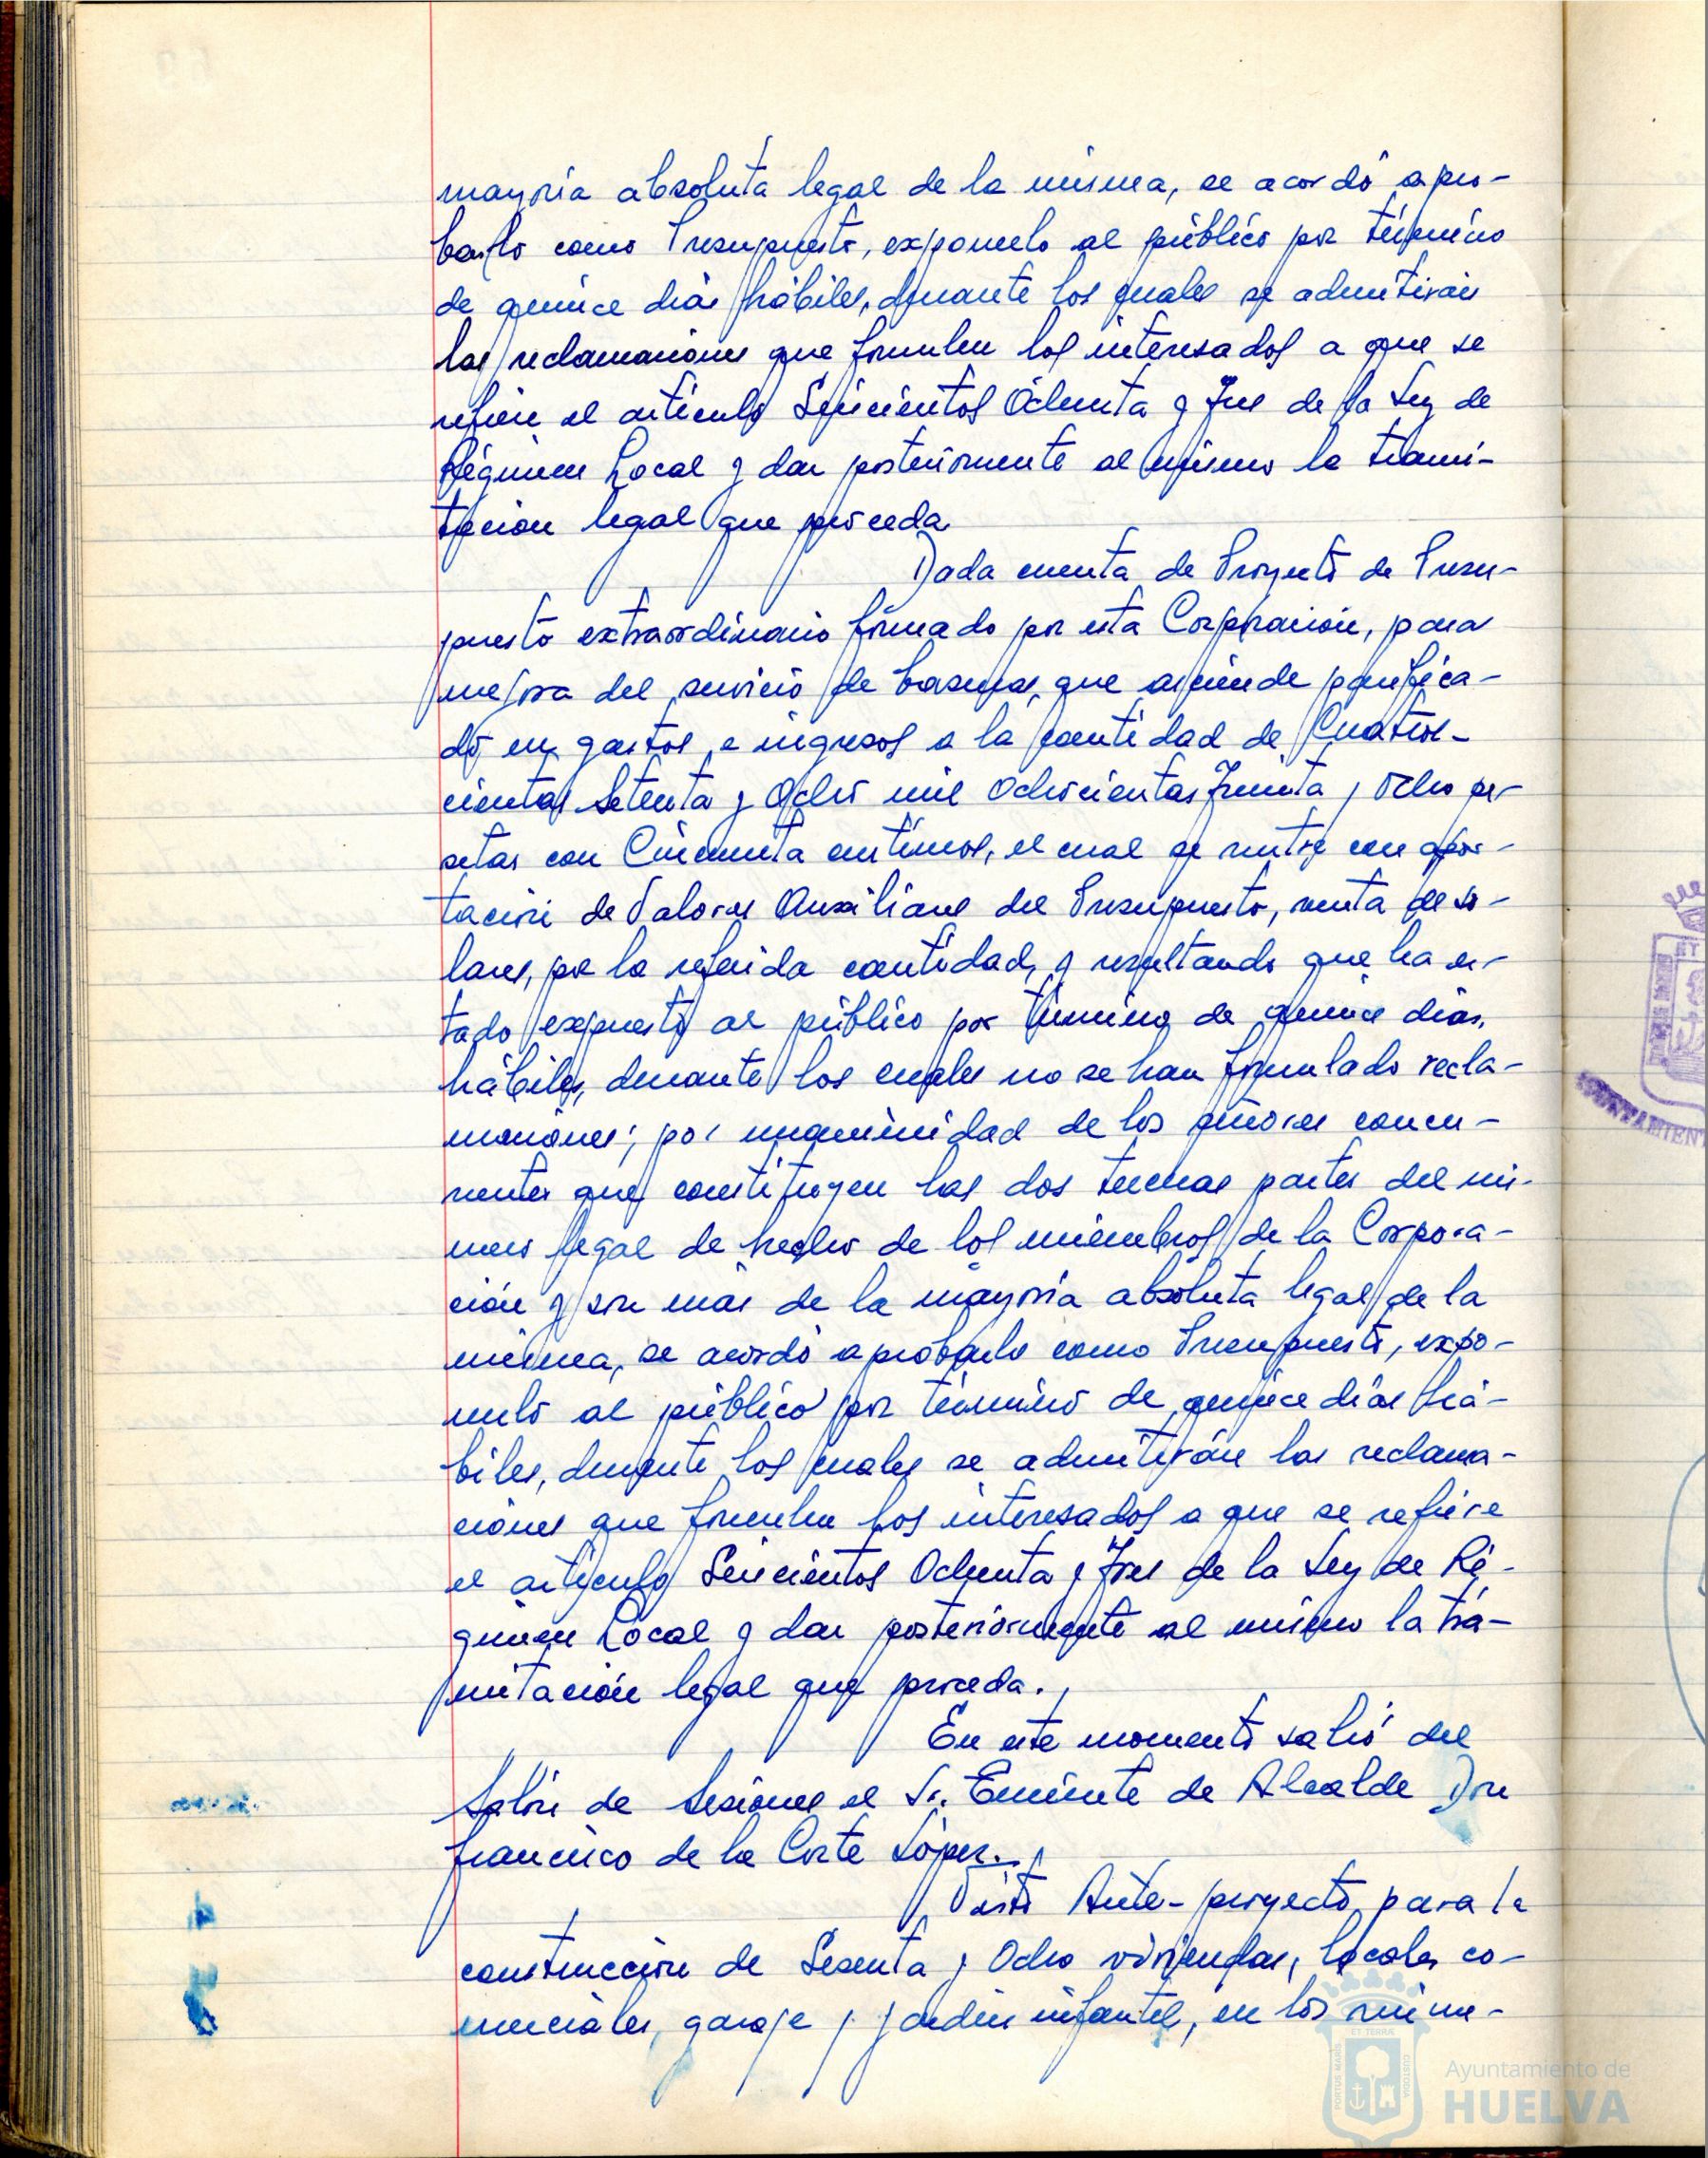 mayoría absoluta legal de la misma, se acordó apro-
barlo como Presupuesto, exponerlo al público por término
de quince días hábiles, durante los cuales se admitirán
las reclamaciones que formulen los interesados a que se
refiere el artículo Seiscientos Ochenta y Tres de la Ley de
Régimen Local y dar posteriormente al mismo la trami-
tación legal que proceda
Dada cuenta de Proyecto de Presu-
puesto extraordinario formado por esta Corporación, para
mejora del servicio de basuras, que asciende panifica-
do en gastos e ingresos a la cantidad de Cuatros-
cientas Setenta y Ocho mil Ochocientas Treinta y Ocho pe-
setas con Cincuenta centimos, el cual se nutre con apor-
tación de Valores Auxiliares del Presupuesto, venta de so-
lares, por la referida cantidad, y resultando que ha es-
tado expuesto al público por término de quince días,
hábiles, durante los cuales no se han formulado recla-
maciones; por unanimidad de los señores concu-
rrentes que constituyen las dos terceras partes del nú-
mero legal de hecho de los miembros de la Corpora-
ción y son más de la mayoría absoluta legal de la
misma, se acordó aprobarlo como Presupuesto, expo-
nerlo al público por término de quince días há-
biles, durante los cuales se admitirán las reclama-
ciones que formulen los interesados a que se refiere
el artículo Seiscientos Ochenta y Tres de la Ley de Ré-
gimen Local y dar posteriormente al mismo la tra-
mitación legal que proceda.
En este momento salió del
Salón de Sesiones el Sr. Teniente de Alcalde Don
Francisco de la Corte López.
Visto Ante-proyecto para la
construcción de Sesenta y Ocho viviendas, locales co-
merciales, garaje y jardín infantil, en los núme-
Ayuntamiento de
HUELVA